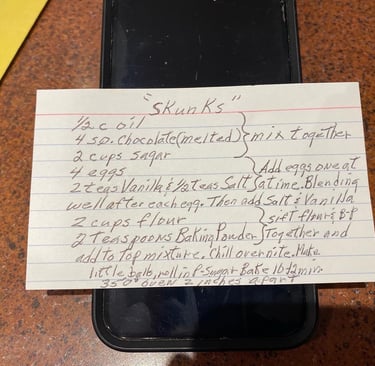 "Skunks"
1/2 c oil
4 sq. chocolate (melted) } mix together
2 cups sugar
4 eggs } Add eggs one at
2 teas Vanilla & 1/2 teas Salt } a time. Blending
well after each one. Then add Salt & Vanilla
2 cups flour } sift flour & B-P
2 Teaspoons Baking Powder } Together and
add to top mixture. Chill over nite. Make
little balls, roll in P-Sugar Bake 10-12 min.
350° oven 2 inches apart